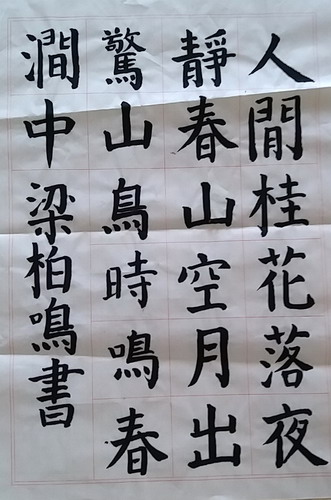 人閒桂花落夜
靜春山空月出
驚山鳥時鳴春
澗中梁柏鳴書